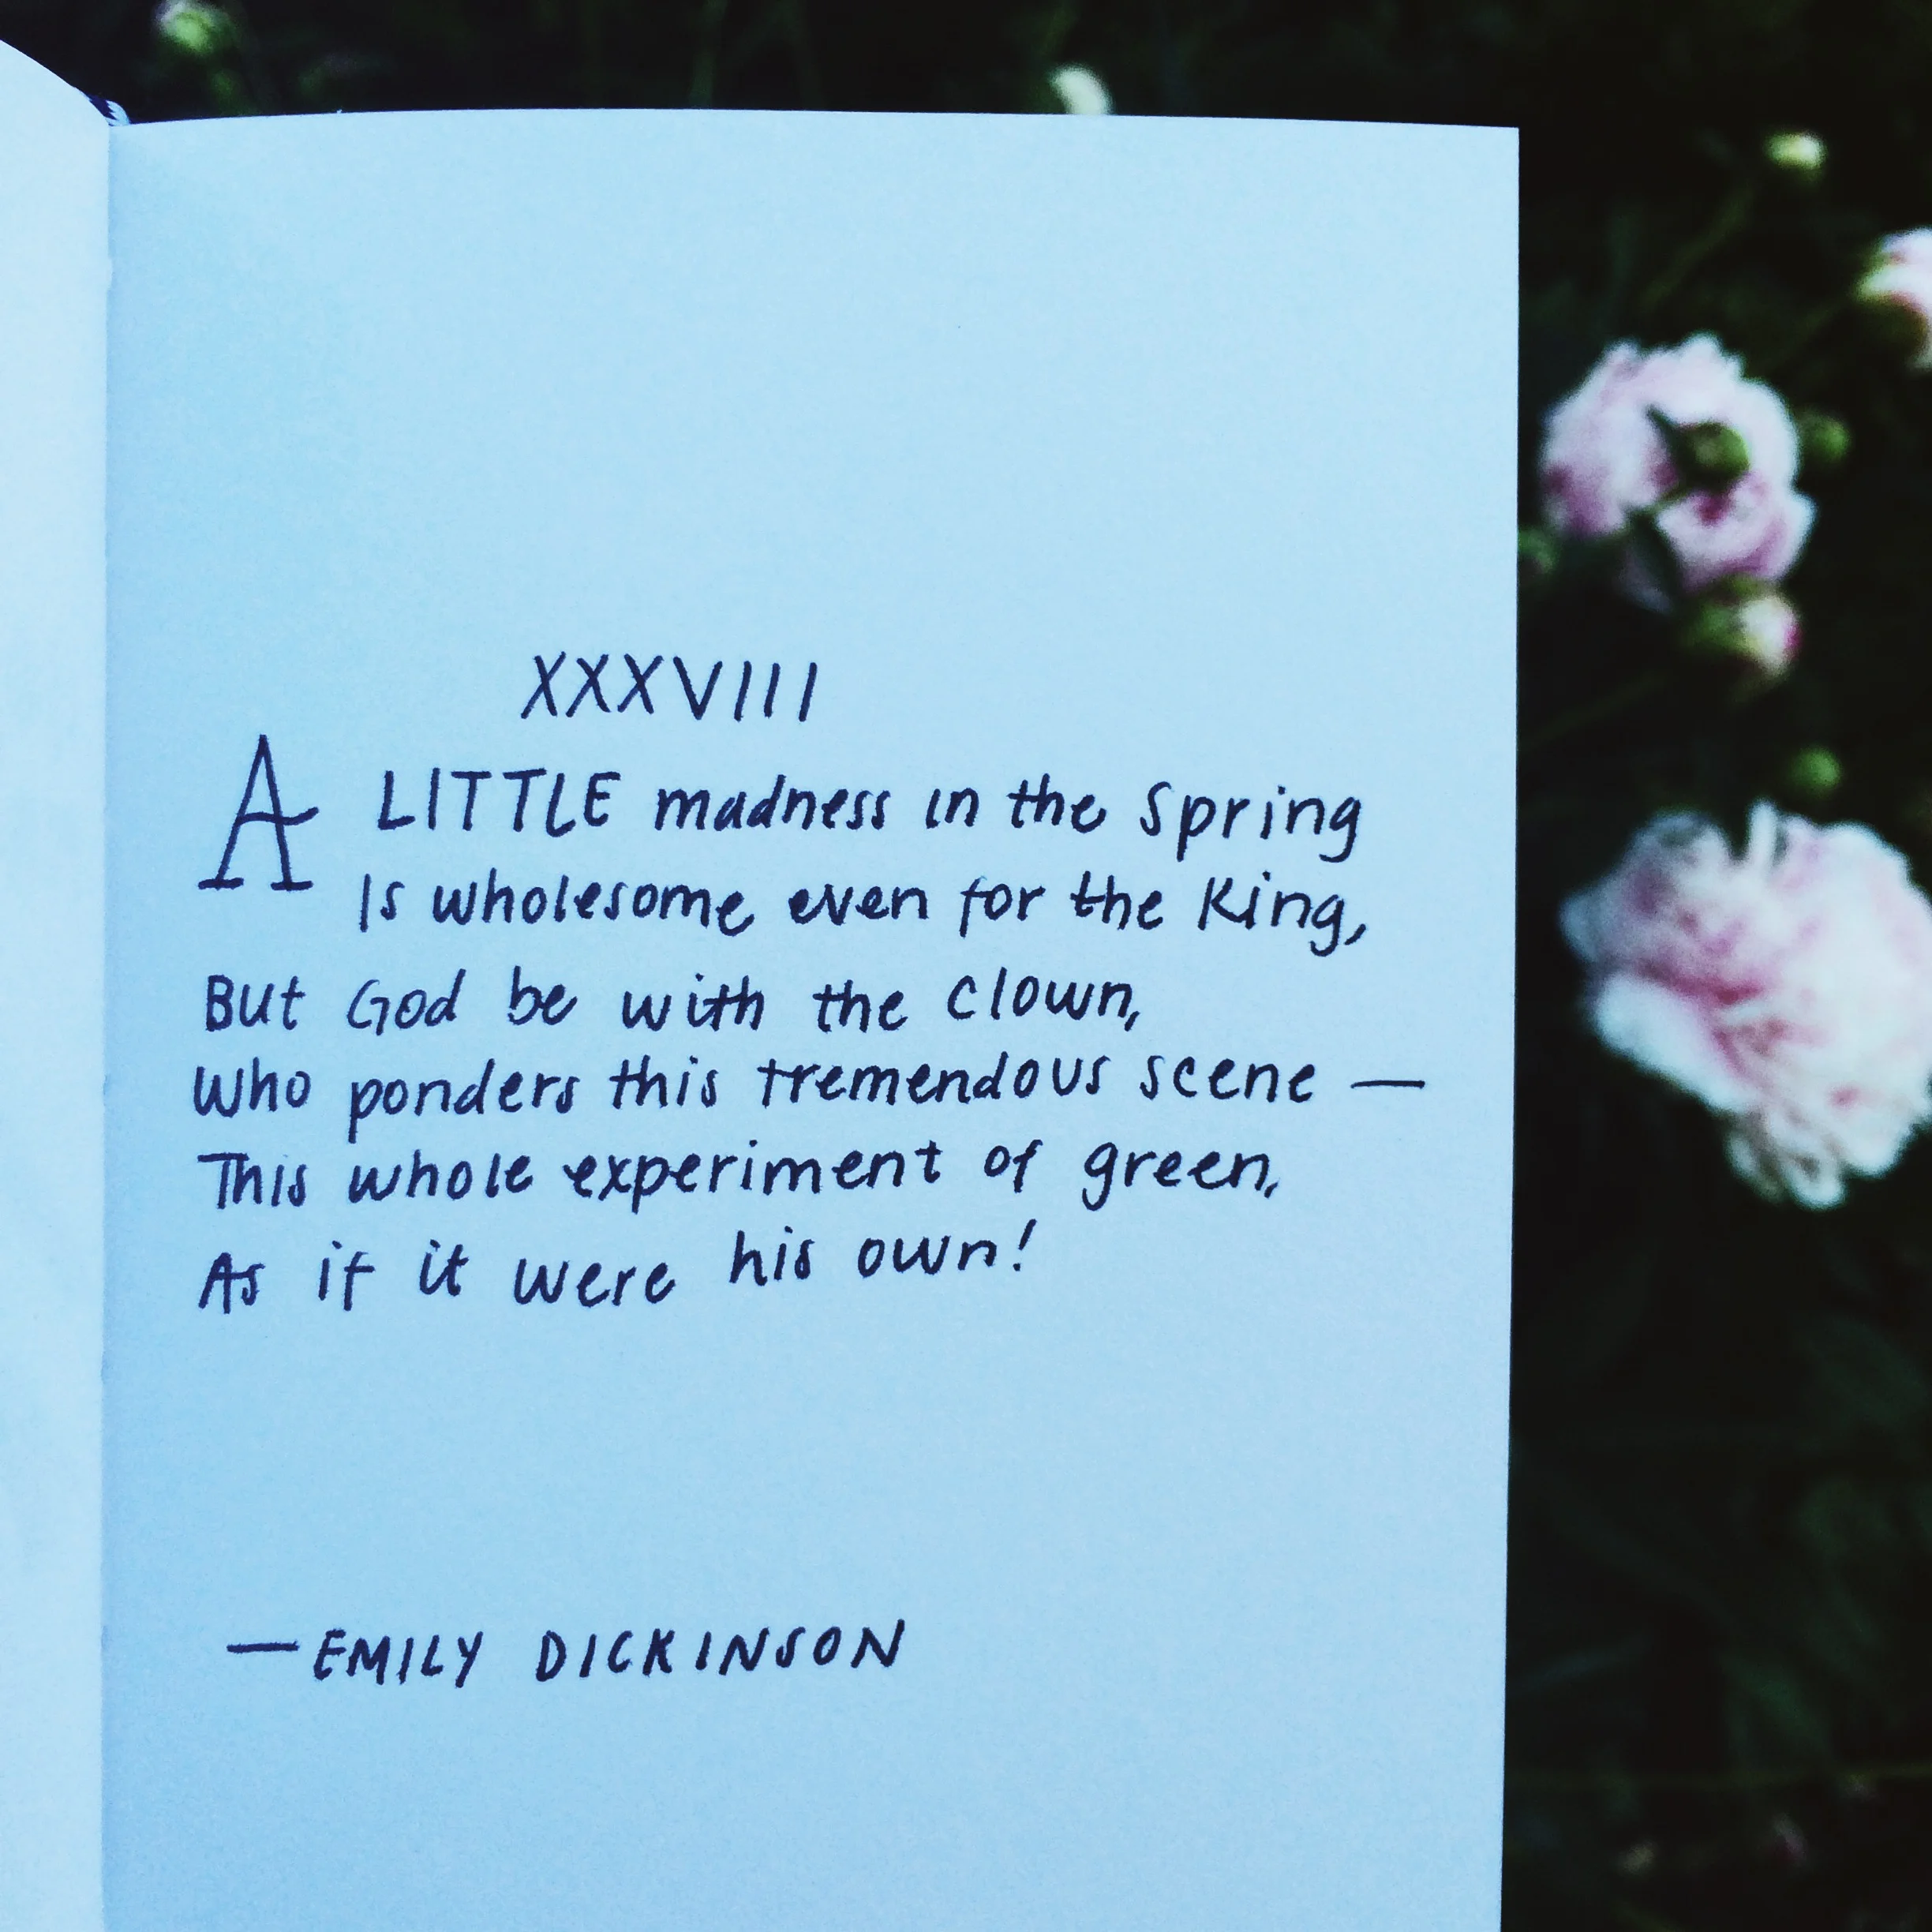 XXXVIII
A LITTLE madness in the Spring
Is wholesome even for the King,
But God be with the Clown,
Who ponders this tremendous scene —
This whole experiment of green,
As if it were his own!
—EMILY DICKINSON